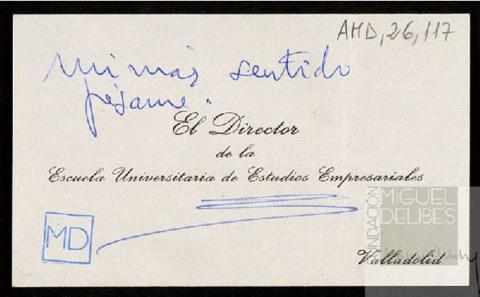 AMD, 26, 117
Mi más sentido
pésame.
El Director
de la
Escuela Universitaria de Estudios Empresariales
FUNDACIÓN
MIGUEL
DELIBES
MD
Valladolid